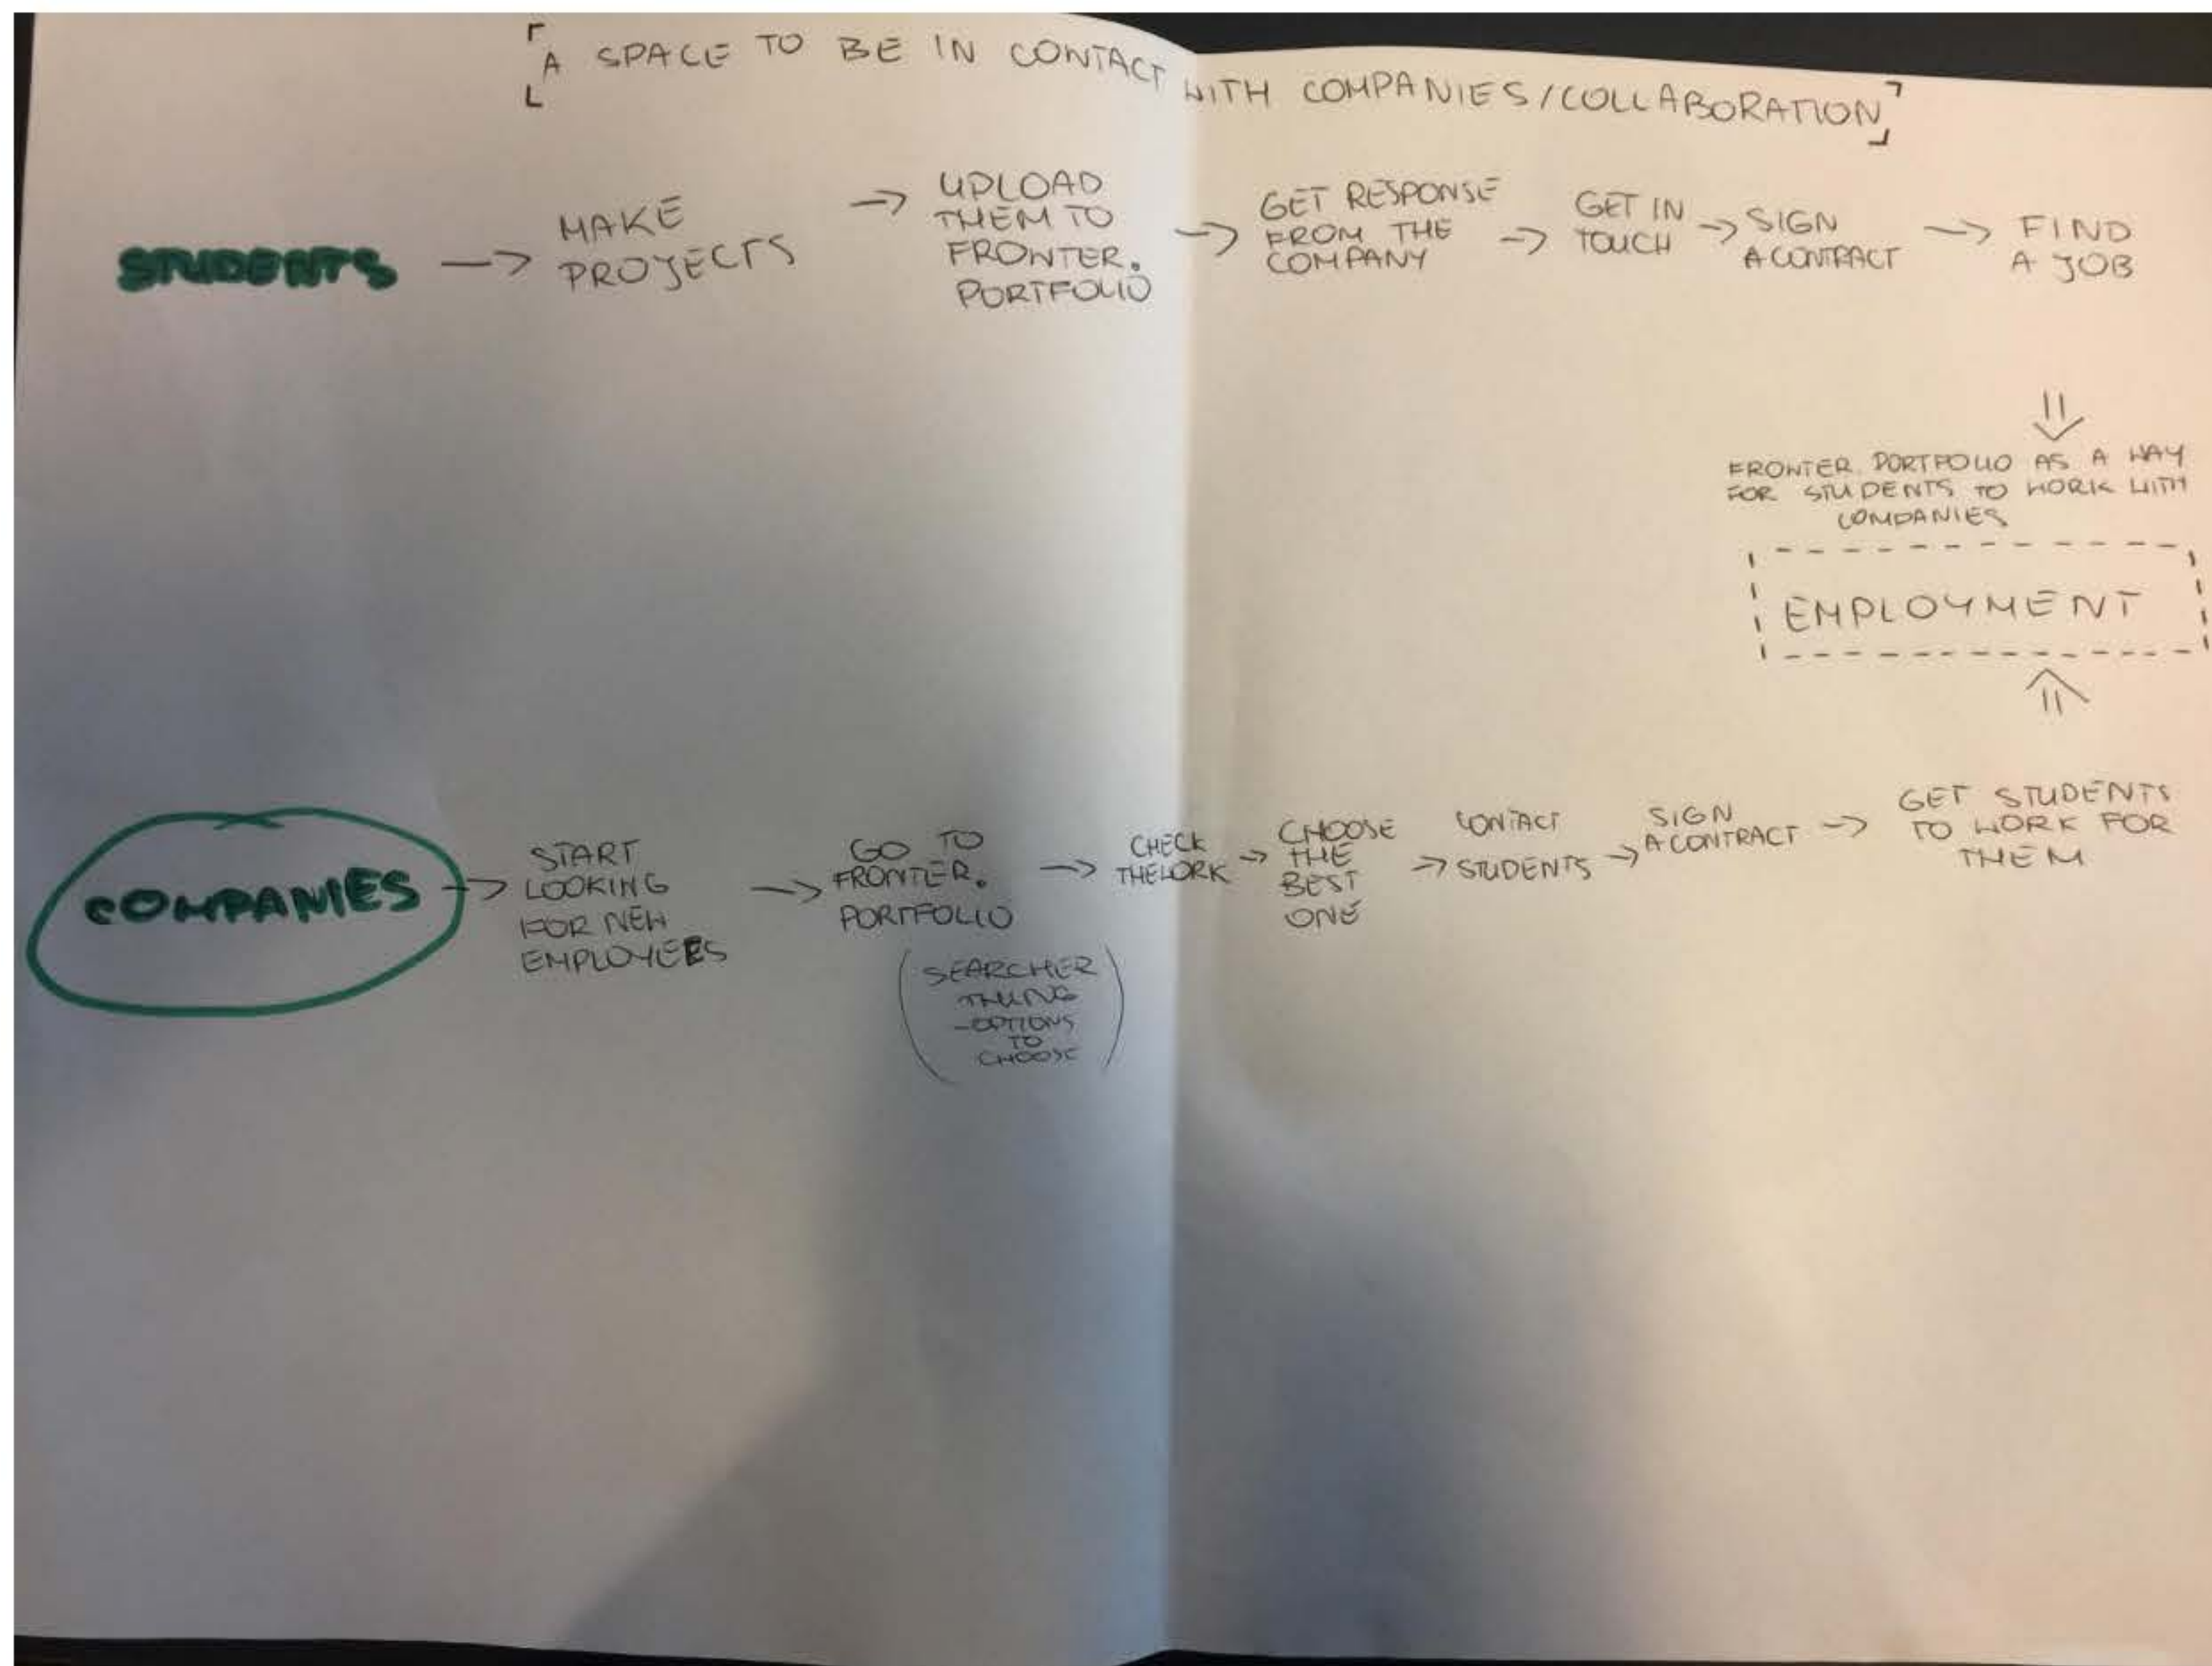 A SPACE TO BE IN CONTACT WITH COMPANIES/COLLABORATION
STUDENTS
MAKE
PROJECTS
UPLOAD
THEM TO
FRONTER.
PORTFOLIO
GET RESPONSE
FROM THE
COMPANY
GET IN
TOUCH
SIGN
A CONTRACT
FIND
A JOB
FRONTER PORTFOLIO AS A WAY
FOR STUDENTS TO WORK WITH
COMPANIES
EMPLOYMENT
COMPANIES
START
LOOKING
FOR NEW
EMPLOYEES
GO TO
FRONTER.
PORTFOLIO
(SEARCHER
THING
-OPTIONS
TO
CHOOSE)
CHECK
THE WORK
CHOOSE
THE
BEST
ONE
CONTACT
STUDENTS
SIGN
A CONTRACT
GET STUDENTS
TO WORK FOR
THEM